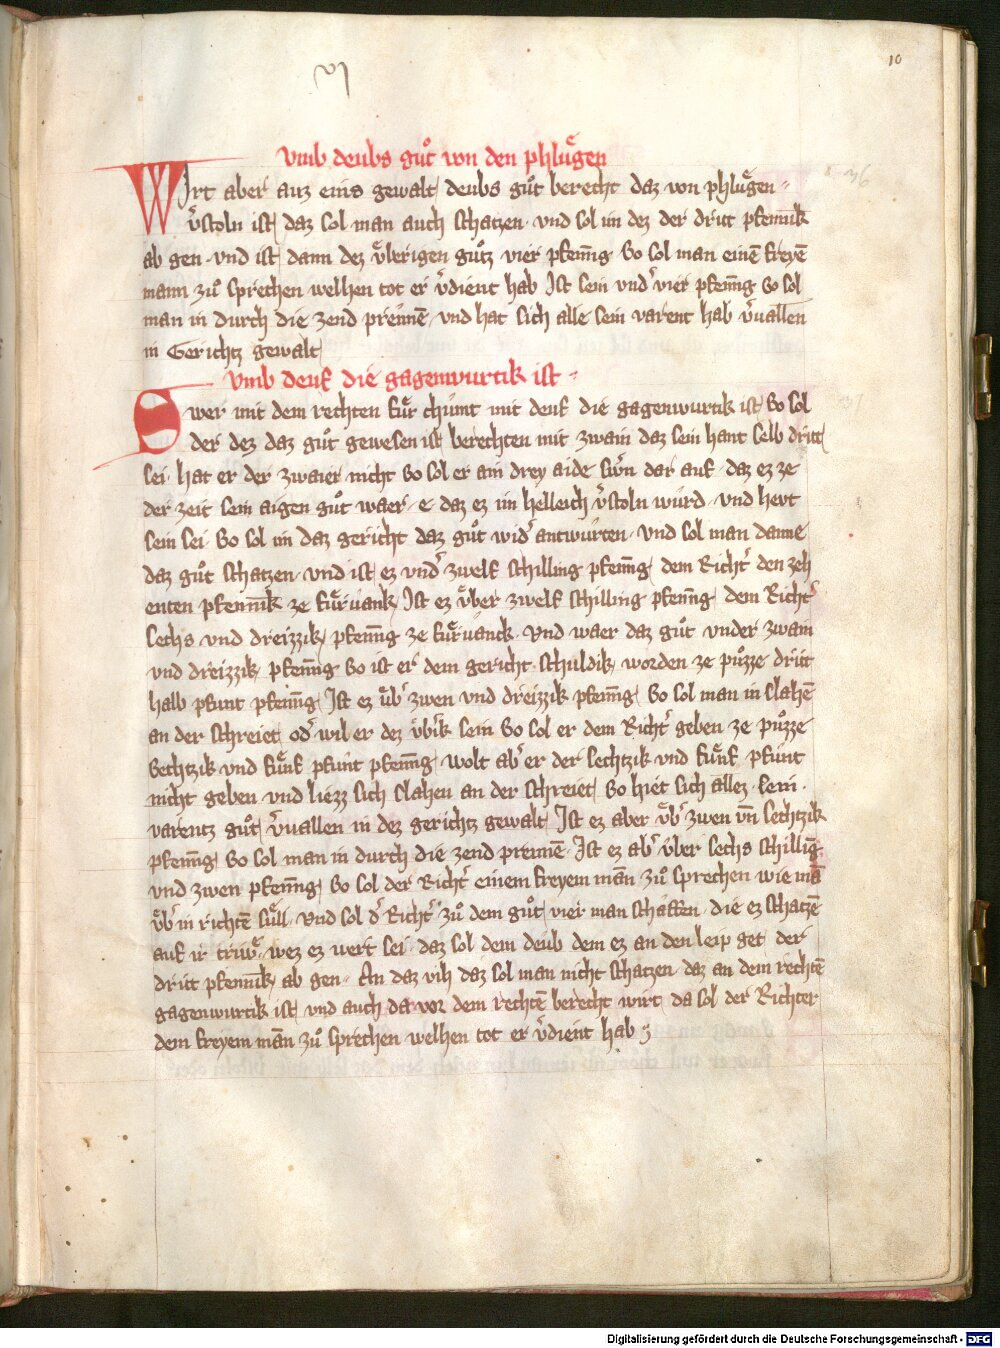 vj
10
Vmb deubs guͦt von den phluͤgen
WIrt aber auz eins gewalt deubs guͦt berecht daz von phluͤgen
v̓stoln ist daz sol man auch schatzen · vnd sol im dez der dritt pfennīk
ab gen · vnd ist dann dez vͤbrigen guͦtz vier pfenīng So sol man einē freyē
mann zuͦ sprechen welhen tot er v̓dient hab Ist sein vnd̓ vier pfenīng So sol
man in durch die zend prennē · vnd hat sich alle sein varent hab v̓uallen
in Gerichtz gewalt
36
Vmb deuf die gagenwurtik ist
Swer mit dem rechten fuͤr chuͤmt mit deuf die gagenwurtik ist So sol
der dez daz guͦt gewesen ist berechten mit zwain daz sein hant selb dritt
37
sei · hat er der zwaier nicht So sol er ain drey aide sw̓n dar auf · daz ez ze
der zeit sein aigen guͦt waer · e · daz ez im helleich v̓stoln wurd · vnd hevt
sein sei · So sol im daz gericht daz guͦt wid̓ antwurten · Vnd sol man danne
daz guͦt schatzen · vnd ist ez vnd̓ zwelf schilling pfenīng dem Richt̓ den zeh
enten pfennīk ze fuͤruank · Ist ez vͤber zwelf schilling pfenīng dem Richt̓
sechs vnd dreizzik pfenīng ze fuͤruanck · Vnd waer daz guͦt vnder zwain
vnd dreizzik pfenīng So ist er dem gericht schuldik worden ze puͦzze dritt
halb pfunt pfenīng Ist ez vͤb̓ zwen vnd dreizzik pfenīng So sol man in slahē
an der schreiet od̓ wil er dez vͤb̓ik sein So sol er dem Richt̓ geben ze puͦzze
Sechtzik vnd fuͤnf pfunt pfenīng · wolt ab̓ er der sechtzik vnd fuͤnf pfunt
nicht geben vnd liezz sich slahen an der schreiet So hiet sich allez sein
varentz guͦt v̓uallen in dez gerichtz gewalt Ist ez aber vͤb̓ zwen vn̄ sechtzik
pfenīng So sol man in durch die zend prennē · Ist ez ab̓ vͤber sechs schilling
vnd zwen pfenīng So sol der Richt̓ einem freyem mān zuͦ sprechen wie mā
vͤb̓ in richtē suͤll · Vnd sol d̓ Richt̓ zuͦ dem guͦt vier man schaffen · die ez schatzē
auf ir triwͤ · wez ez wert sei · daz sol dem deub dem ez an den leip get der
dritt pfennīk ab gen · An daz vih daz sol man nicht schatzen daz an dem rechtē
gagenwurtik ist vnd auch da vor dem rechtē berecht wirt da sol der Richter
dem freyem mān zuͦ sprechen welhen tot er v̓dient hab
Digitalisierung gefördert durch die Deutsche Forschungsgemeinschaft - DFG